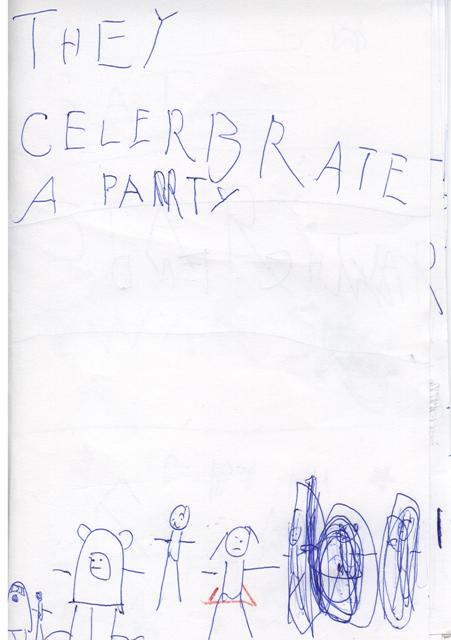 THEY
CELERBRATE
A PARRTY